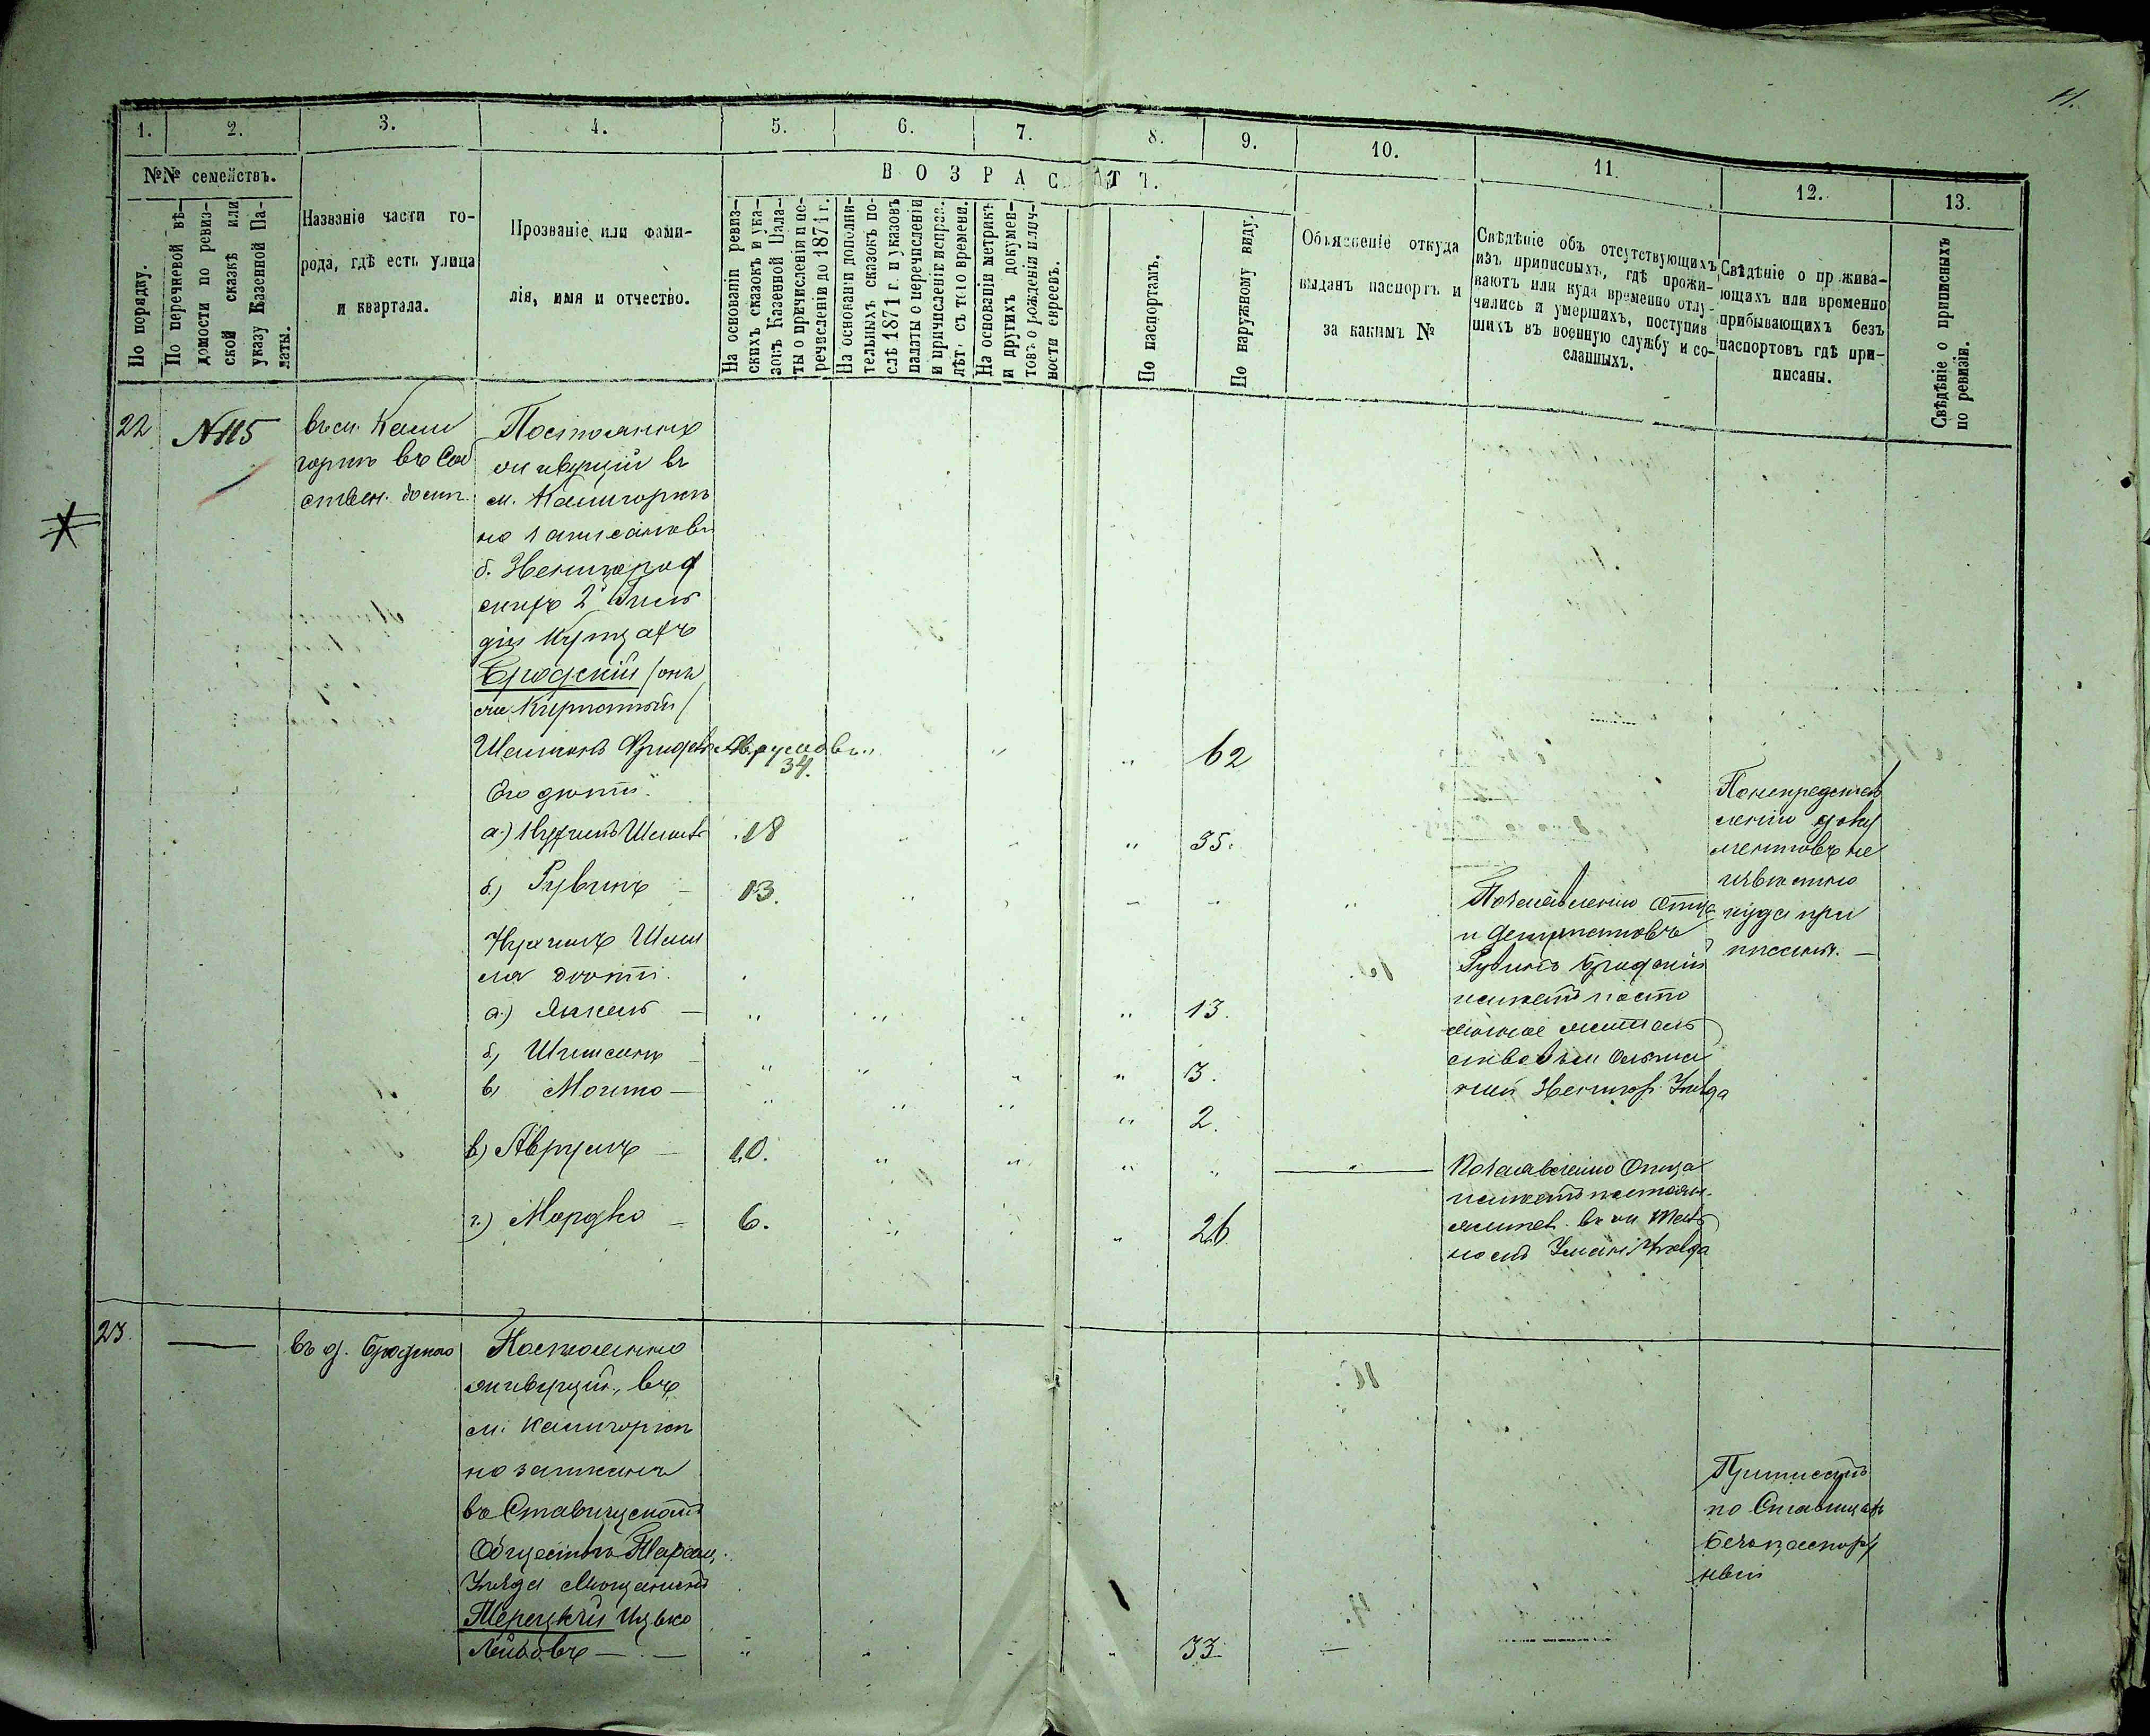 11.
1. 2. 3. 4. 5. 6. 7. 8. 9. 10. 11. 12. 13.
№№ семействъ.
По порядку.
По перечневой вѣ-
домости по ревиз-
ской сказкѣ или
указу Казенной Па-
латы.
Названіе части го-
рода, гдѣ есть улица
и квартала.
Прозваніе или фами-
лія, имя и отчество.
ВОЗРАСТЪ.
На основаніи ревиз-
скихъ сказокъ и ука-
зовъ Казенной Пала-
ты о причисленіи и пе-
речисленіи до 1871 г.
На основаніи дополни-
тельныхъ сказокъ по-
слѣ 1871 г. и указовъ
палаты о перечисленіи
и причисленіе исправ.
лѣт. съ того времени.
На основаніи метрикъ
и другихъ докумен-
товъ о рожденіи и лич-
ности евреевъ.
По паспортамъ.
По наружному виду.
Объясненіе откуда
выданъ паспортъ и
за какимъ №
Свѣдѣніе объ отсутствующихъ
изъ приписныхъ, гдѣ прожи-
ваютъ или куда временно отлу-
чились и умершихъ, поступив
шихъ въ военную службу и со-
сланныхъ.
Свѣдѣніе о прожива-
ющихъ или временно
прибывающихъ безъ
паспортовъ гдѣ при-
писаны.
Свѣдѣніе о приписныхъ
по ревизіи.
22 №115
въ м. Кали
горкѣ въ Соб
ствен. домѣ.
Постоянно
живущій въ
м. Калигоркѣ
но записанъ въ
б. Звенигород
скихъ 2й Гиль
діи Купцахъ
Бродскій /онъ
же
Аврумовъ 34. 62
Его дѣти:
а.) Нухимъ 18 35.
б.) Рувинъ 13.
Нухима
дѣти
а.) Янкель — 13.
б.) — 3.
в) — 2.
в.) Аврумъ — 10.
г.) Мордко — 6. 26
По заявленію Отца
и Депутатовъ
Рувинъ Бродскій
имѣетъ посто
янное жител
ство въ м.
Звенигор. Уѣзда
По заявленію Отца
имѣетъ постоян.
жител. въ м.
Уман. Уѣзда
По непредстав
ленію доку
ментовъ не
извѣстно
куда при
писанъ. —
23. —
въ д. Бродскаго
Постоянно
живущій, въ
м. Калигоркѣ
но записанъ
въ Ставищскомъ
Обществѣ Таращ.
Уѣзда Мѣщанинъ
Ицько
Лейбовъ — 33 —
по Ставищамъ
безпаспорт
ный